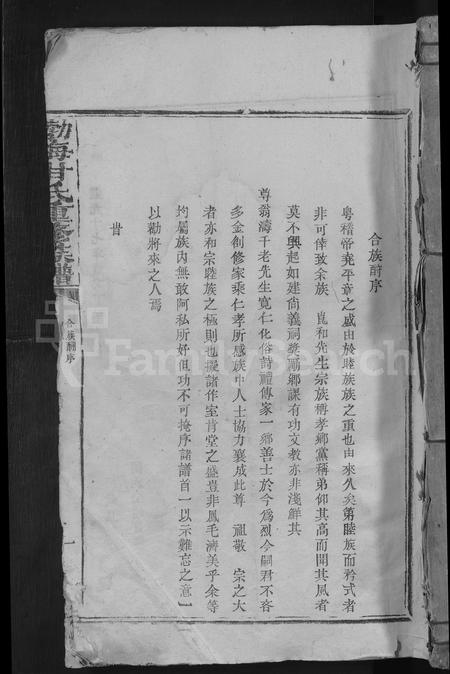 合族酧序
粵稽帝堯平章之盛由於睦族族之重也由來久矣第睦族而矜式者
非可倖致余族 崑和先生宗族稱孝鄉黨稱弟仰其高而聞其風者
莫不興起如建尚義祠獎兩鄉課有功文教亦非淺鮮其
尊翁濤千老先生寬仁化俗詩禮傳家一鄉善士於今爲烈今嗣君不吝
多金創修家乘仁孝所感族中人士協力襄成此尊 祖敬 宗之大
者亦和宗睦族之極則也擬諸作室肯堂之盛豈非鳳毛濟美乎余等
均屬族内無敢阿私所好但功不可掩序諸譜首一以示難忘之意一
以勸將來之人焉
旹
渤海甘氏重修族譜
合族酧序
一
FamilySearch